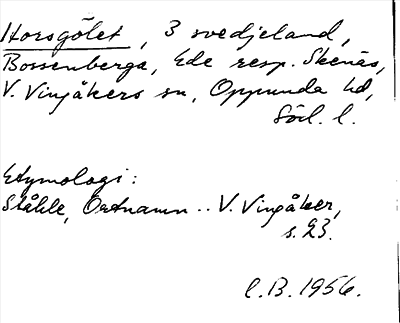 Horsgölet, 3 svedjeland,
Bossenberga, Ede resp. Skenäs,
V. Vingåkers sn, Oppunda hd,
Södl. l.
Etymologi:
Ståhle, Ortnamn .. V. Vingåker,
s. 23.
C.B. 1956.